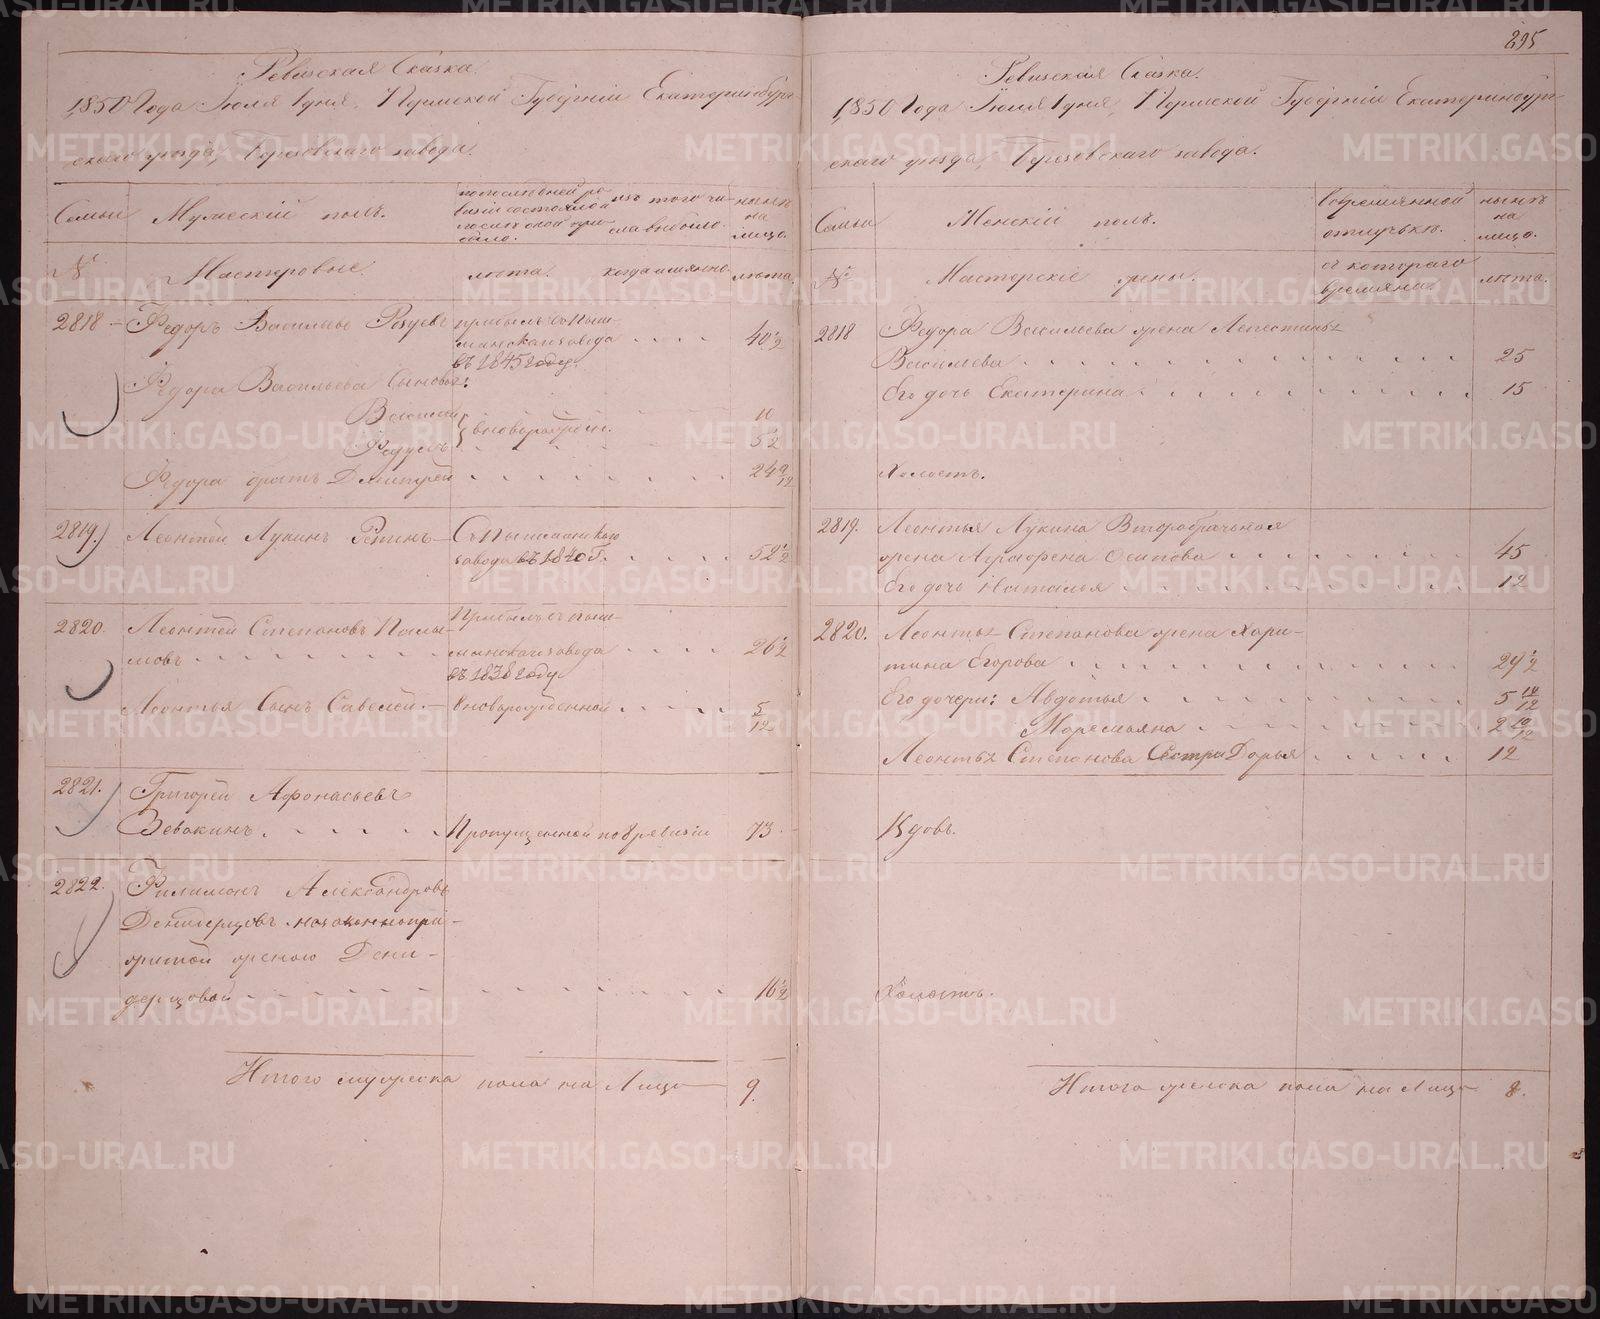 895
Ревизская Сказка.
1850 Года Июля 1 дня, Пермской Губерніи Екатеринбург-
скаго уезда, Березовскаго завода.
Семьи Мужескій полъ.
по последней ре-
визіи состояло и
после оной при-
было.
изъ того чи-
сла выбыло.
ныне
на
лицо.
№ Мастеровые. лета. когда именно. лета.
2818 Федоръ Васильевъ
прибылъ съ Пыш-
минскаго завода 40 1/2
въ 1845 году.
Федора Васильева Сыновья:
Василій 10
вноворожден.
5 1/2
Федора братъ Дмитрей 24 9/12
2819. Леонтей Лукинъ
С Пышминскаго
завода въ 1840 Г. 52 1/2
2820. Леонтей Степановъ
Прибылъ с Пыш-
минскаго завода 26 1/2
въ 1838 году
Леонтья Сынъ Савелей вноворожденной 5/12
2821. Григорей Афонасьевъ
Зевакинъ Пропущенной по 8 ревизіи 73
2822. Филимонъ Александровъ
незаконнопри-
житой женою
16 1/2
Итого мужеска пола на Лицо 9.
Ревизская Сказка.
1850 Года Июля 1 дня, Пермской Губерніи Екатеринбург-
скаго уезда, Березовскаго завода.
Семьи Женскій полъ.
в временной
отлучьке.
ныне
на
лицо.
№ Мастерскіе жены.
с котораго
времяни.
лета.
2818 Федора Васильева жена
Васильева 25
Его дочь Екатерина 15
Холостъ.
2819. Леонтья Лукина Второбрачная
жена Аграфена Осипова 45
Его дочь Наталья 12
2820. Леонтья Степанова жена Хари-
тина Егорова 29 1/2
Его дочери: Авдотья 5 10/12
Маремьяна 2 10/12
Леонтья Степанова Сестра Дарья 12
Вдовъ.
Холостъ.
Итого женска пола на Лицо 8.
METRIKI.GASO-URAL.RU